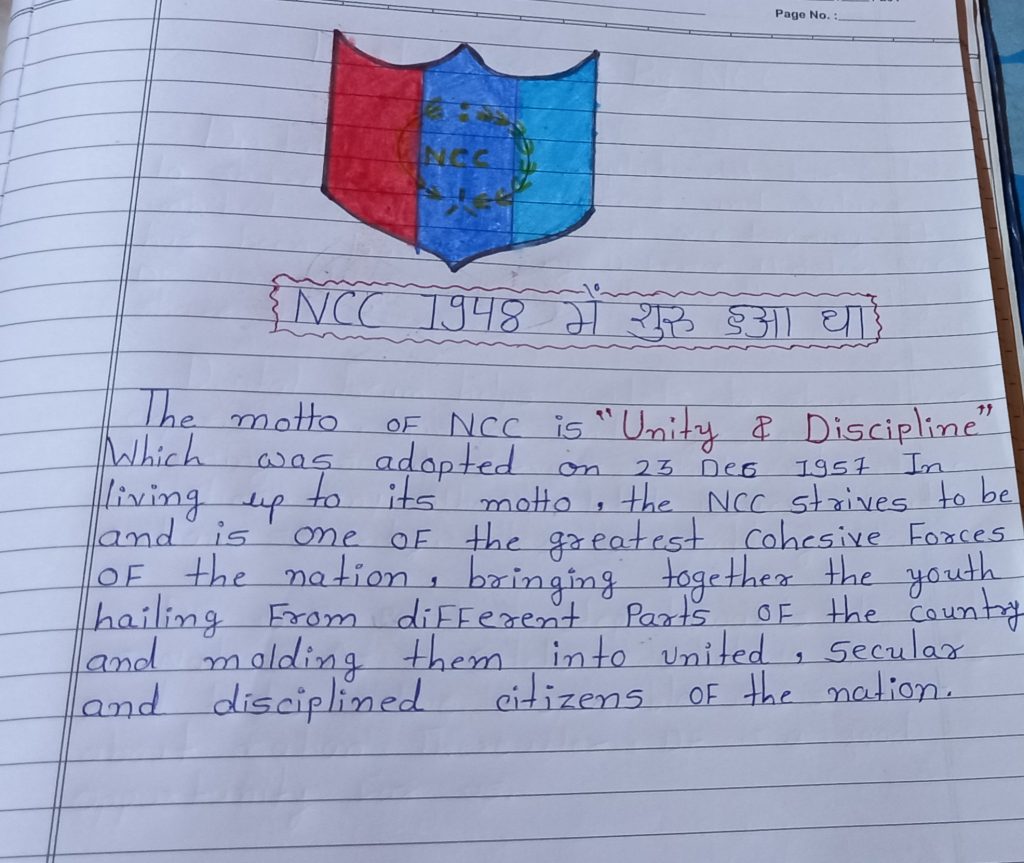 Page No. :
NCC
NCC 1948 में शुरू हुआ था
The motto OF NCC is "Unity & Discipline"
Which was adopted on 23 Dec 1957 In
living up to its motto, the NCC strives to be
and is one OF the greatest cohesive Forces
OF the nation, bringing together the youth
hailing From diFFerent Parts OF the country
and molding them into united, secular
and disciplined citizens OF the nation.